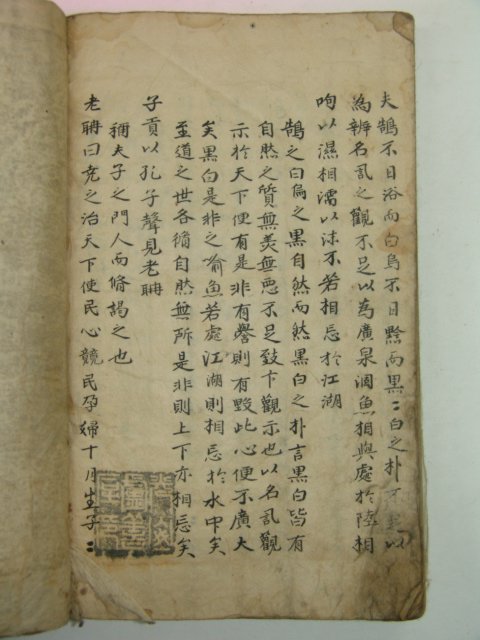 夫鵠不日浴而白烏不日黔而黑二白之朴不足以
為辨名訊之觀不足以為廣泉涸魚相與處於陸相
呴以濕相濡以沫不若相忘於江湖
鵠之白烏之黑自然而然黑白之朴言黑白皆有
自然之質無美無惡不足致卞觀示也以名訊觀
示於天下便有是非有譽則有毀此心便不廣大
矣黑白是非之喻魚若處江湖則相忘於水中矣
至道之世各循自然無所是非則上下亦相忘矣
子貢以孔子聲見老聃
稱夫子之門人而脩謁之也
老聃曰堯之治天下使民心競民孕婦十月生子二